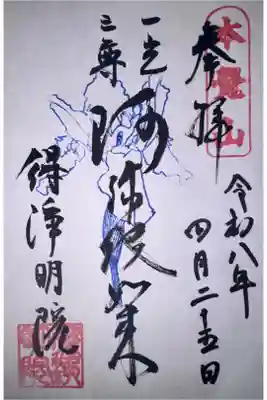 奉拝
本覺山
令和八年
四月二十五日
一光
三尊
阿弥陀如来
得浄明院